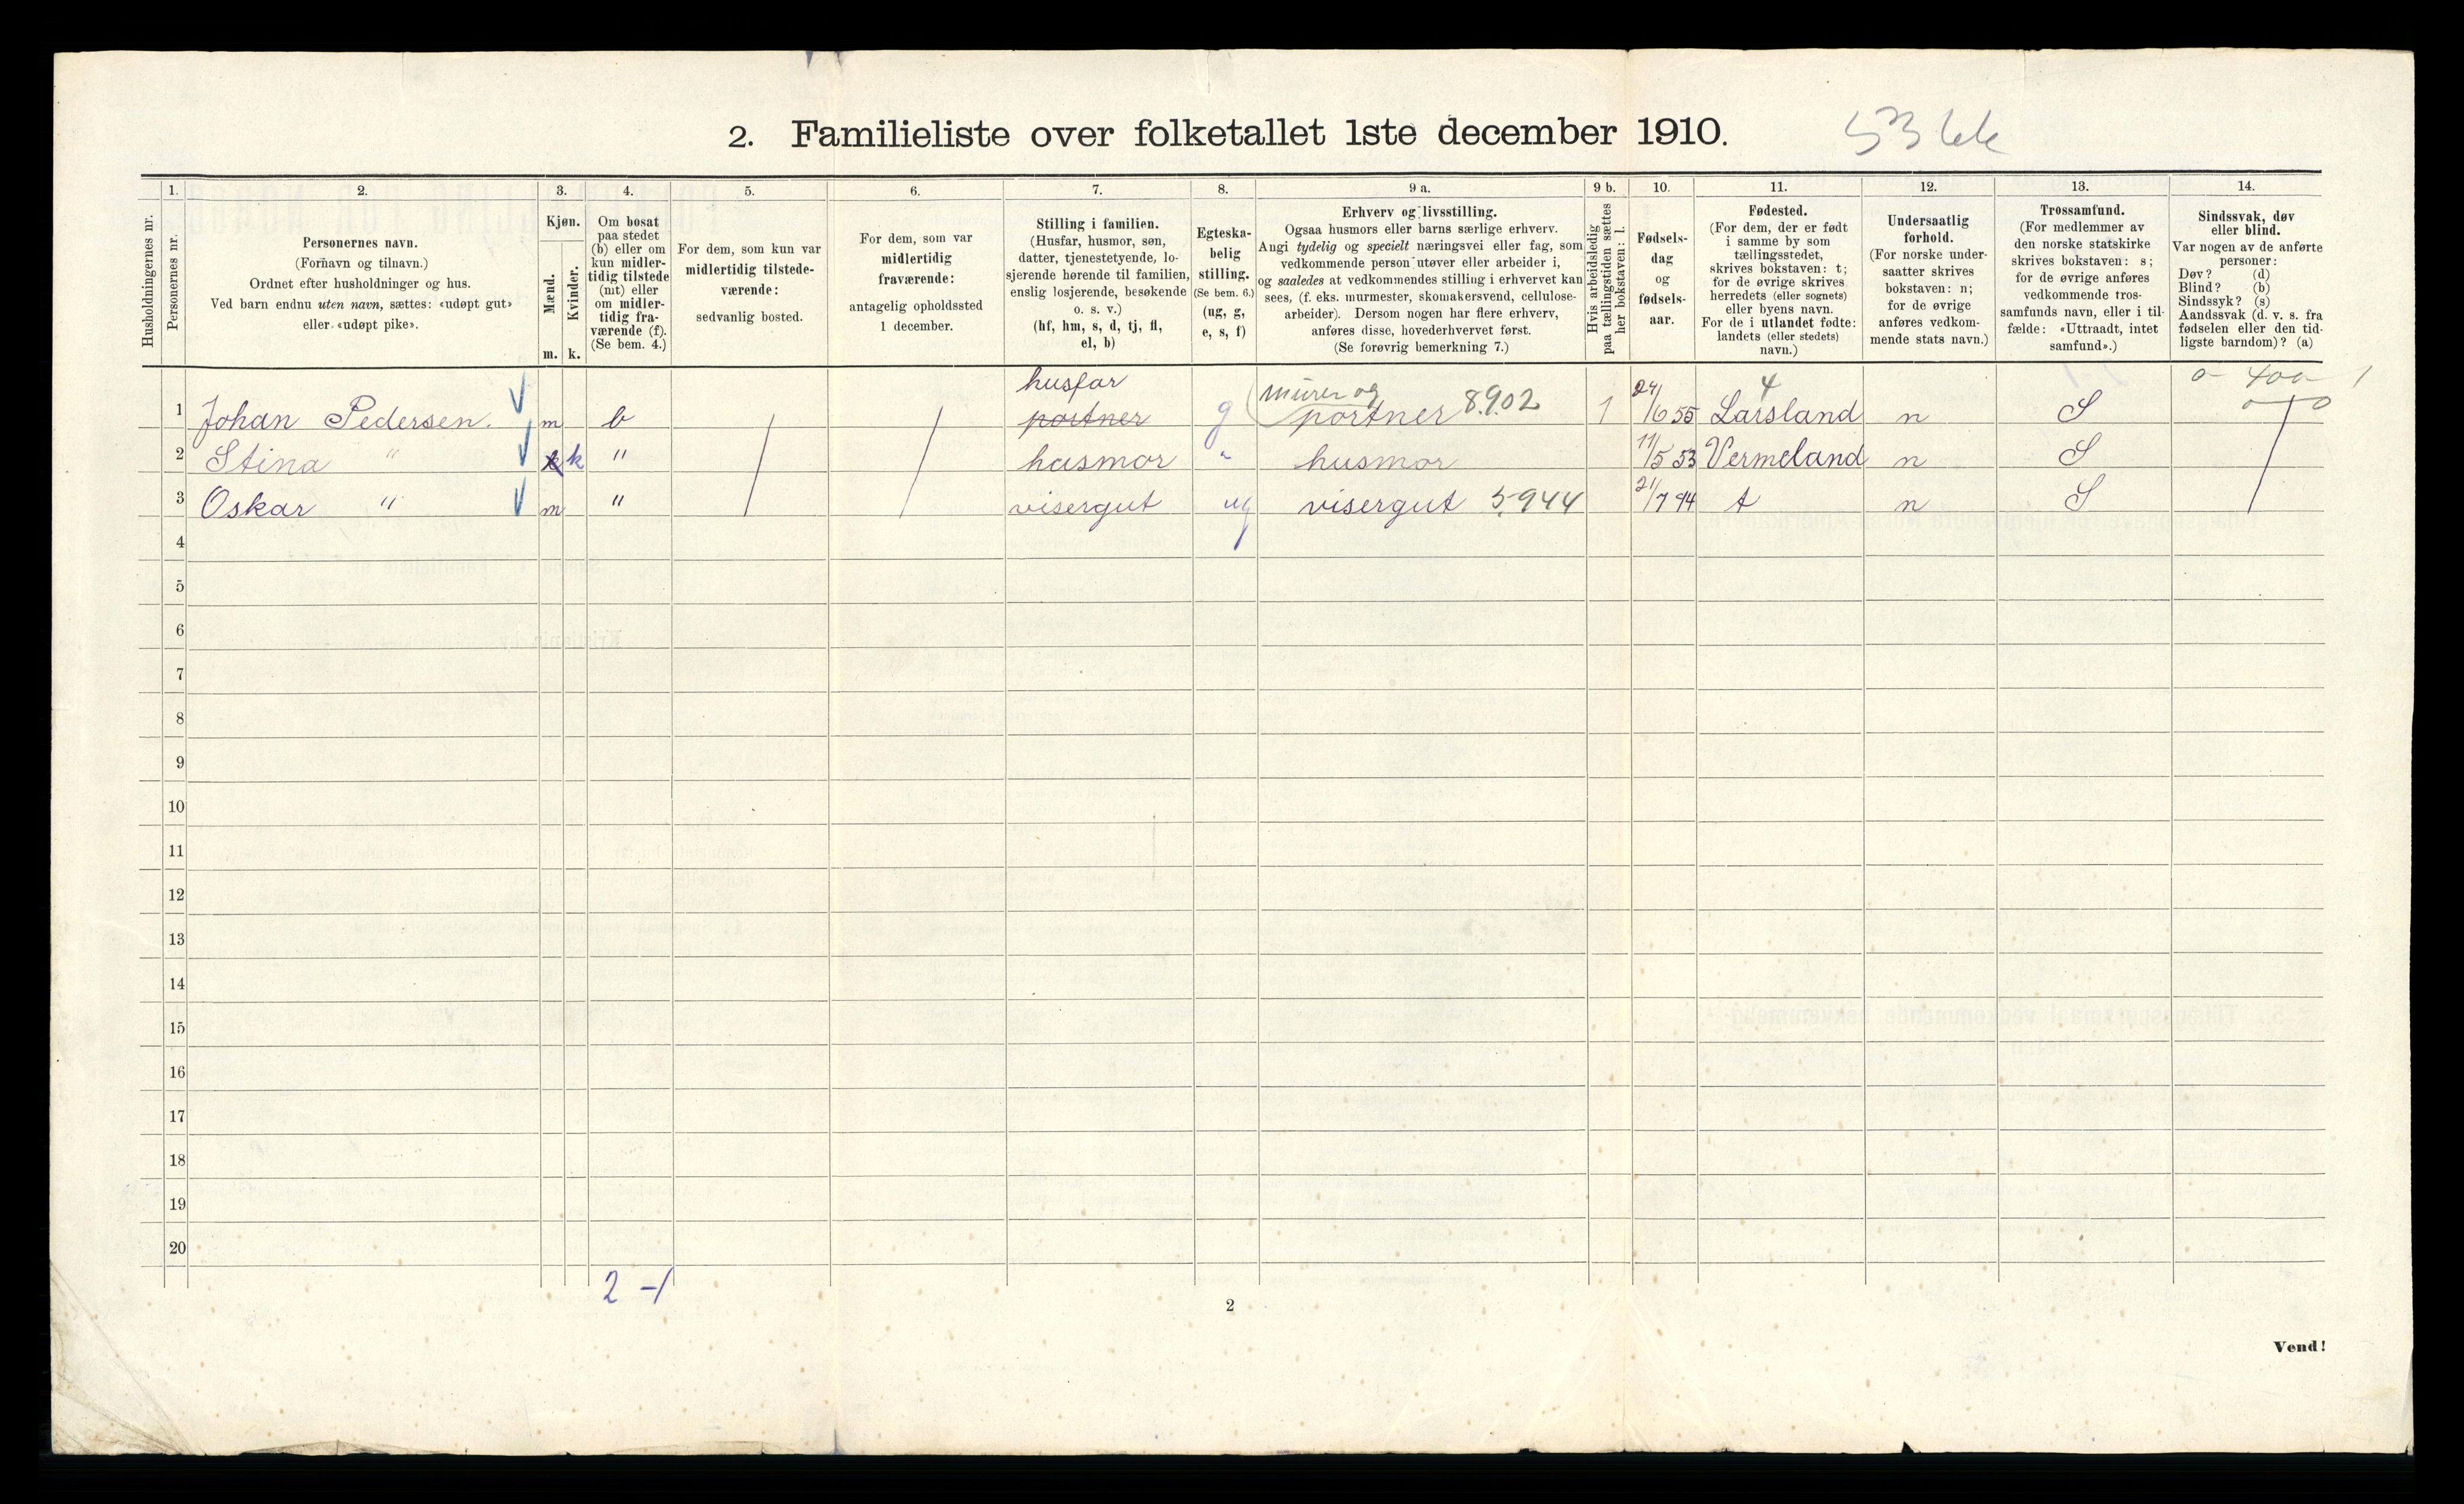 2. Familieliste over folketallet 1ste december 1910.
Husholdningernes nr.
1.
Personernes nr.
2.
Personernes navn.
(Fornavn og tilnavn.)
Ordnet efter husholdninger og hus.
Ved barn endnu uten navn, sættes: «udøpt gut»
eller «udøpt pike».
3.
Kjøn.
Mænd.
m.
Kvinder.
k.
4.
Om bosat
paa stedet
(b) eller om
kun midler-
tidig tilstede
(mt) eller
om midler-
tidig fra-
værende (f).
(Se bem. 4.)
5.
For dem, som kun var
midlertidig tilstede-
værende:
sedvanlig bosted.
6.
For dem, som var
midlertidig
fraværende:
antagelig opholdssted
1 december.
7.
Stilling i familien.
(Husfar, husmor, søn,
datter, tjenestetyende, lo-
sjerende hørende til familien,
enslig losjerende, besøkende
o. s. v.)
(hf, hm, s, d, tj, fl,
el, b)
8.
Egteska-
belig
stilling.
(Se bem. 6.)
(ug, g,
e, s, f)
9 a.
Erhverv og livsstilling.
Ogsaa husmors eller barns særlige erhverv.
Angi tydelig og specielt næringsvei eller fag, som
vedkommende person utøver eller arbeider i,
og saaledes at vedkommendes stilling i erhvervet kan
sees, (f. eks. murmester, skomakersvend, cellulose-
arbeider). Dersom nogen har flere erhverv,
anføres disse, hovederhvervet først.
(Se forøvrig bemerkning 7.)
9 b.
Hvis arbeidsledig
paa tællingstiden sættes
her bokstaven: l.
10.
Fødsels-
dag
og
fødsels-
aar.
11.
Fødested.
(For dem, der er født
i samme by som
tællingsstedet,
skrives bokstaven: t;
for de øvrige skrives
herredets (eller sognets)
eller byens navn.
For de i utlandet fødte:
landets (eller stedets)
navn.)
12.
Undersaatlig
forhold.
(For norske under-
saatter skrives
bokstaven: n;
for de øvrige
anføres vedkom-
mende stats navn.)
13.
Trossamfund.
(For medlemmer av
den norske statskirke
skrives bokstaven: s;
for de øvrige anføres
vedkommende tros-
samfunds navn, eller i til-
fælde: «Uttraadt, intet
samfund».)
14.
Sindssvak, døv
eller blind.
Var nogen av de anførte
personer:
Døv? (d)
Blind? (b)
Sindssyk? (s)
Aandssvak (d. v. s. fra
fødselen eller den tid-
ligste barndom)? (a)
husfar murer og 4 0 - 400 - 1
1 Johan Pedersen. m b portner g portner 8.902 1 24/6 55 Larsland n S
2 Stina " k k " husmor " husmor 11/5 53 Vermeland n S
3 Oskar " m " visergut ug visergut 5.944 21/7 94 t n S
4
5
6
7
8
9
10
11
12
13
14
15
16
17
18
19
20
2 - 1
2
Vend!